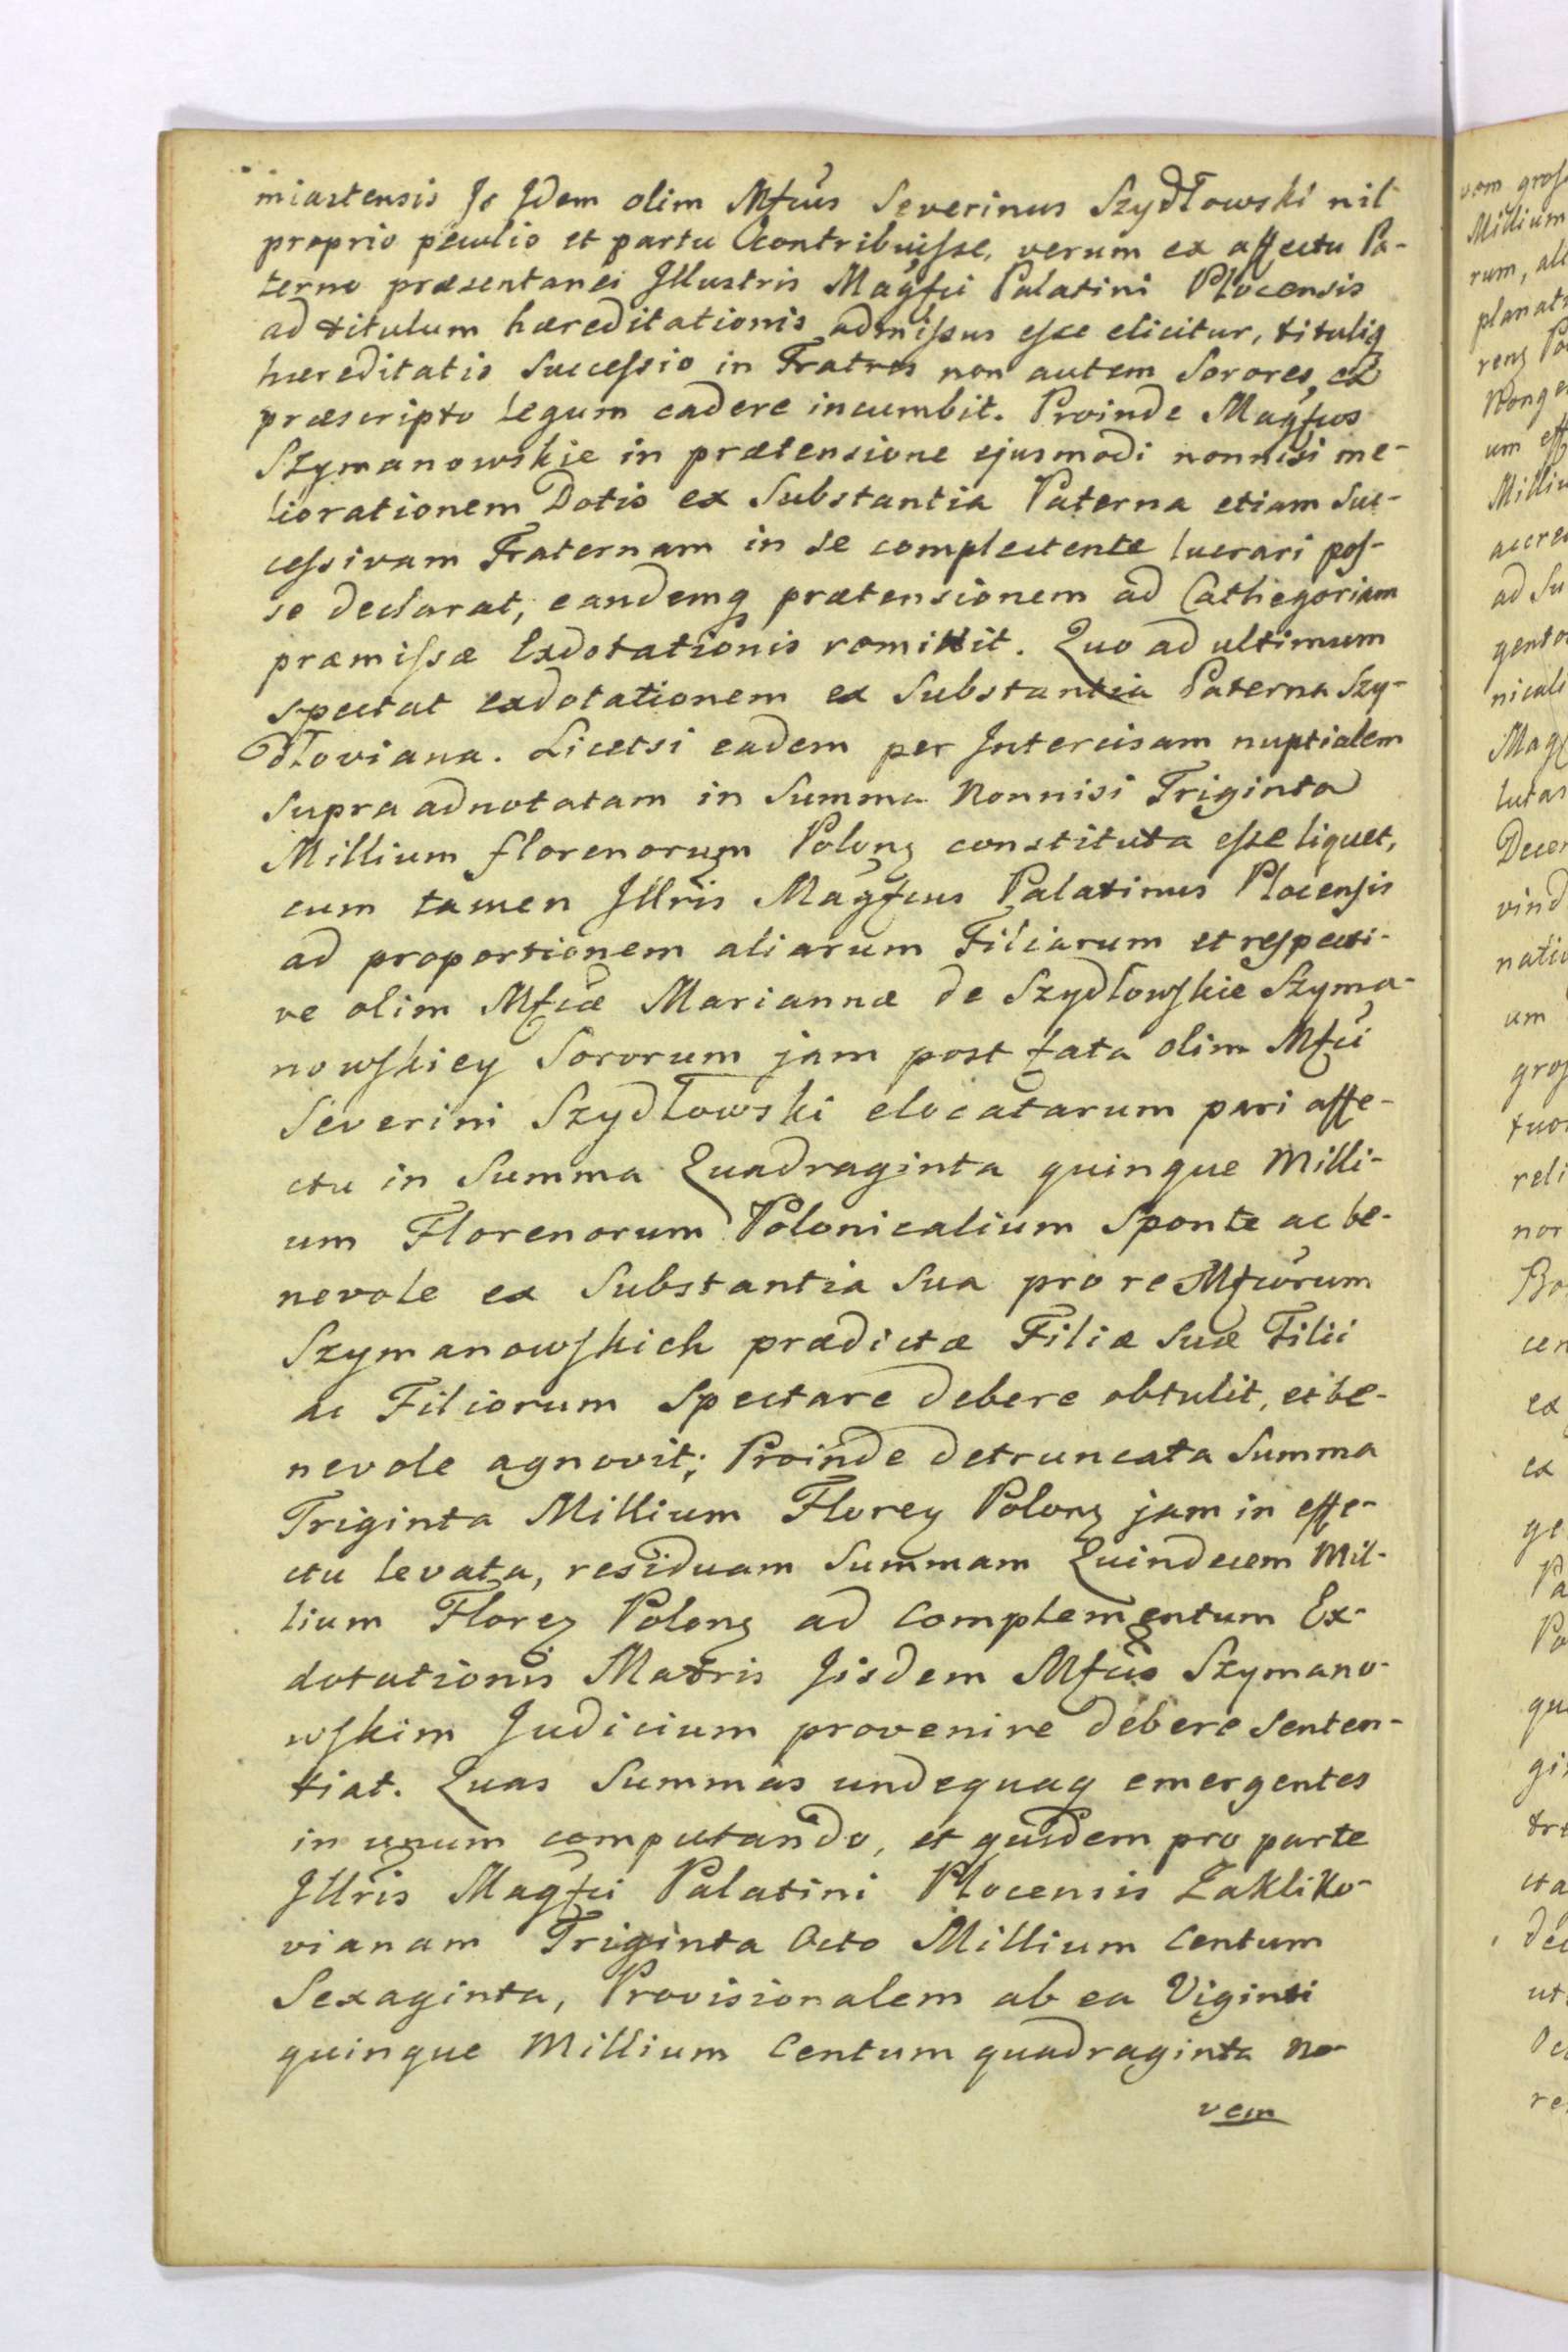 miastensis Is Idem olim Mfcus Severinus Szydłowski nil
proprio peculio et partu Contribuisse, verum ex affectu Pa-
terno præsentanei Illustris Magfci Palatini Plocensis
ad titulum hæreditationis admissus esse elicitur, tituliq
hæreditatis Successio in Fratres non autem Sorores, ex
præscripto Legum cadere incumbit. Proinde Magfcos
Szymanowskie in prætensione ejusmodi nonnisi me-
liorationem Dotis ex Substantia Paterna etiam Suc-
cessivam Fraternam in se complectente lucrari pos-
se declarat, eandemq prætensionem ad Cathegoriam
præmissæ Exdotationis remittit. Quo ad ultimum
spectat exdotationem ex Substantia Paterna Szy-
dłoviana. Licetsi eadem per Intercisam nuptialem
Supra adnotatam in Summa Nonnisi Triginta
Millium florenorum Polonz constituta esse liquet,
cum tamen Illris Magfcus Palatinus Plocensis
ad proportionem aliarum Filiarum et respecti-
ve olim Mfcæ Mariannæ de Szydłowskie Szyma-
nowskiey Sororum jam post fata olim Mfci
Severini Szydłowski elocatarum pari affe-
ctu in Summa Quadraginta quinque Milli-
um Florenorum Polonicalium Sponte ac be-
nevole ex Substantia Sua pro re Mfcorum
Szymanowskich prædictæ Filiæ Suæ Filii
ac Filiorum Spectare debere obtulit, et be-
nevole agnovit; Proinde detruncata Summa
Triginta Millium Florez Polonz jam in effe-
ctu levata, residuam Summam Quindecem Mil-
lium Florez Polonz ad Complementum Ex-
dotationis Matris Iisdem Mfcis Szymano-
wskim Judicium provenire debere Senten-
tiat. Quas Summas undequaq emergentes
in unum computando, et quidem pro parte
Illris Magfci Palatini Plocensis Zakliko-
vianam Triginta Octo Millium Centum
Sexaginta, Provisionalem ab ea Viginti
quinque Millium Centum quadraginta No-
vem